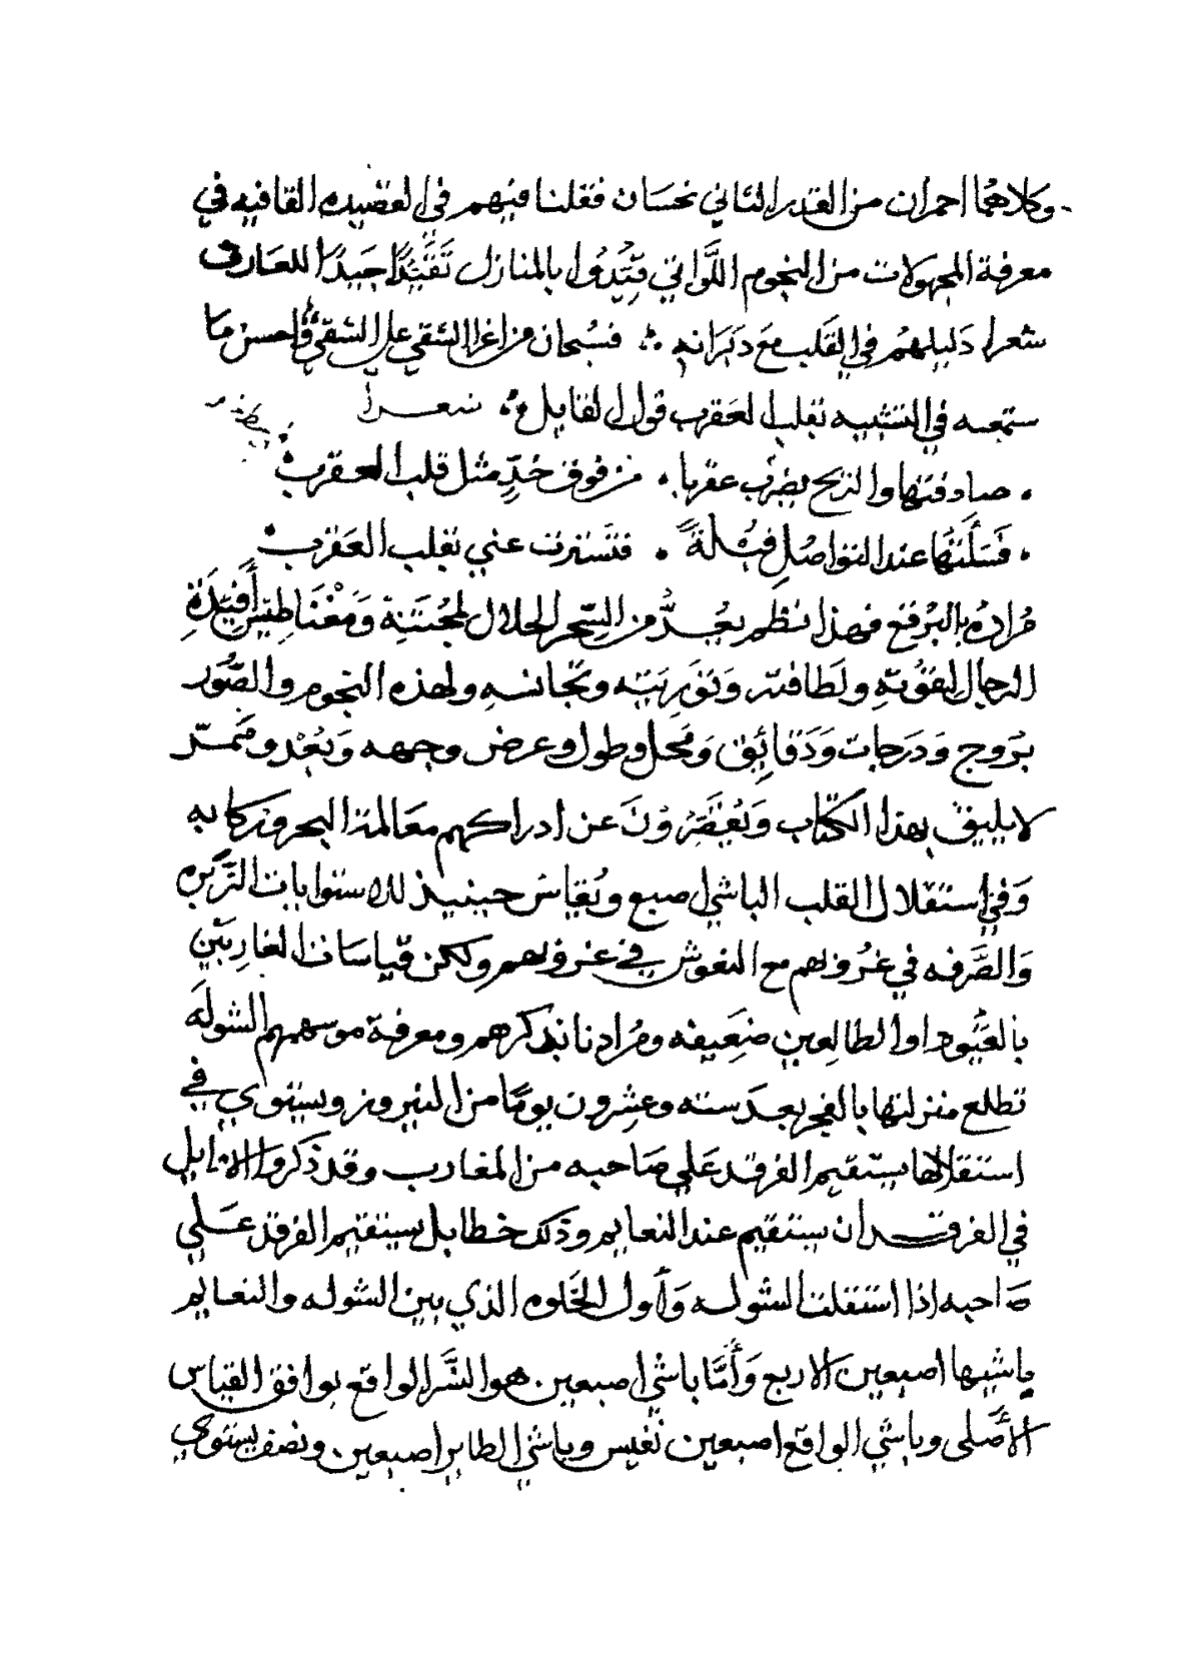 وكلاهما احمران من القدر الثاني نحسان فقلنا فيهم في القصيده القافيه في
معرفة المجهولات من النجوم اللَّوَاتي قُيِّدُوا بالمنازل تَقَيُّدًا جَيدًا للعَارف
شعرا دَليلهُم في القَلب مَع دَبَرَانه ؞ فسُبحان من اغرا الشقي على الشقي واحسن مَا
سمعه في التشبيه بقلب العَقرب قول القايل ؞ شعرا
• صادفتها والريح يضرب عقربا • من فوق خدٍّ مثل قلب العقرب
• فَسَأَلتُها عند التواصُلِ قُبْلةً • فتسترت عني بقلب العَقرب
مُراده بالبُرقع فهذا نظم يعُدُّ من السِّحر الحلال لمجْتَنِيه وَمَغْنَاطِيس أَفئِدَةِ
الرجال لقُوّتهِ ولَطافته وَتورِيَتِه وتجَانسهِ ولهذه النجوم والصُّوَر
برُوج وَدَرَجات وَدَقائِق وَمَحل وطول وعرض وجهه وَبُعْد ومَمرّ
لا يليق بهذا الكتاب وَيُقَصِّرُونَ عن ادراكهم معَالمة البحر وركابه
وَفي استقلال القلب الباشي اصبع ويُقاسُ حينيذ للاستوايات الزُّبره
وَالصَّرفه في غُروبهم مع النعوش في غروبهم ولكن قياسَات الغارِبَين
بالعَيُّوق او الطالِعين ضَعِيفه ومُرادنا بذكرهم ومعرفة موسمهم الشولَه
تطلع منزلتها بالفجر بعدَ سته وعِشرون يومًا من النيروز ويستوي في
استقلالها يستقيم الفرقد عَلى صَاحبه من المغارب وقد ذكروا الاوايل
في الفرقد ان يستقيم عند النعايم وذلك خطا بل يستقيم الفرقد عَلى
صَاحبه اذا استقلت الشوله وَأول الخَلوه الذي بين الشوله والنعايم
باشيها اصبعين الاربع وَأمَّا باشي اصبعين هو النَّسر الواقع يوافق القياس
الأصلى وباشي الواقع اصبعين نفيس وباشي الطاير اصبعين ونصف يستوي